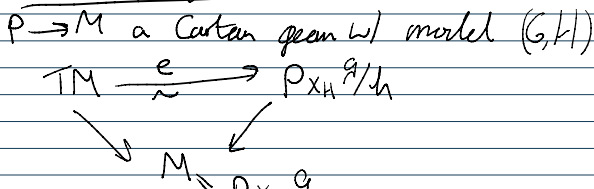 P → M a Cartan geom w/ model (G,H)
TM —e/~→ P ×_H g/h
M